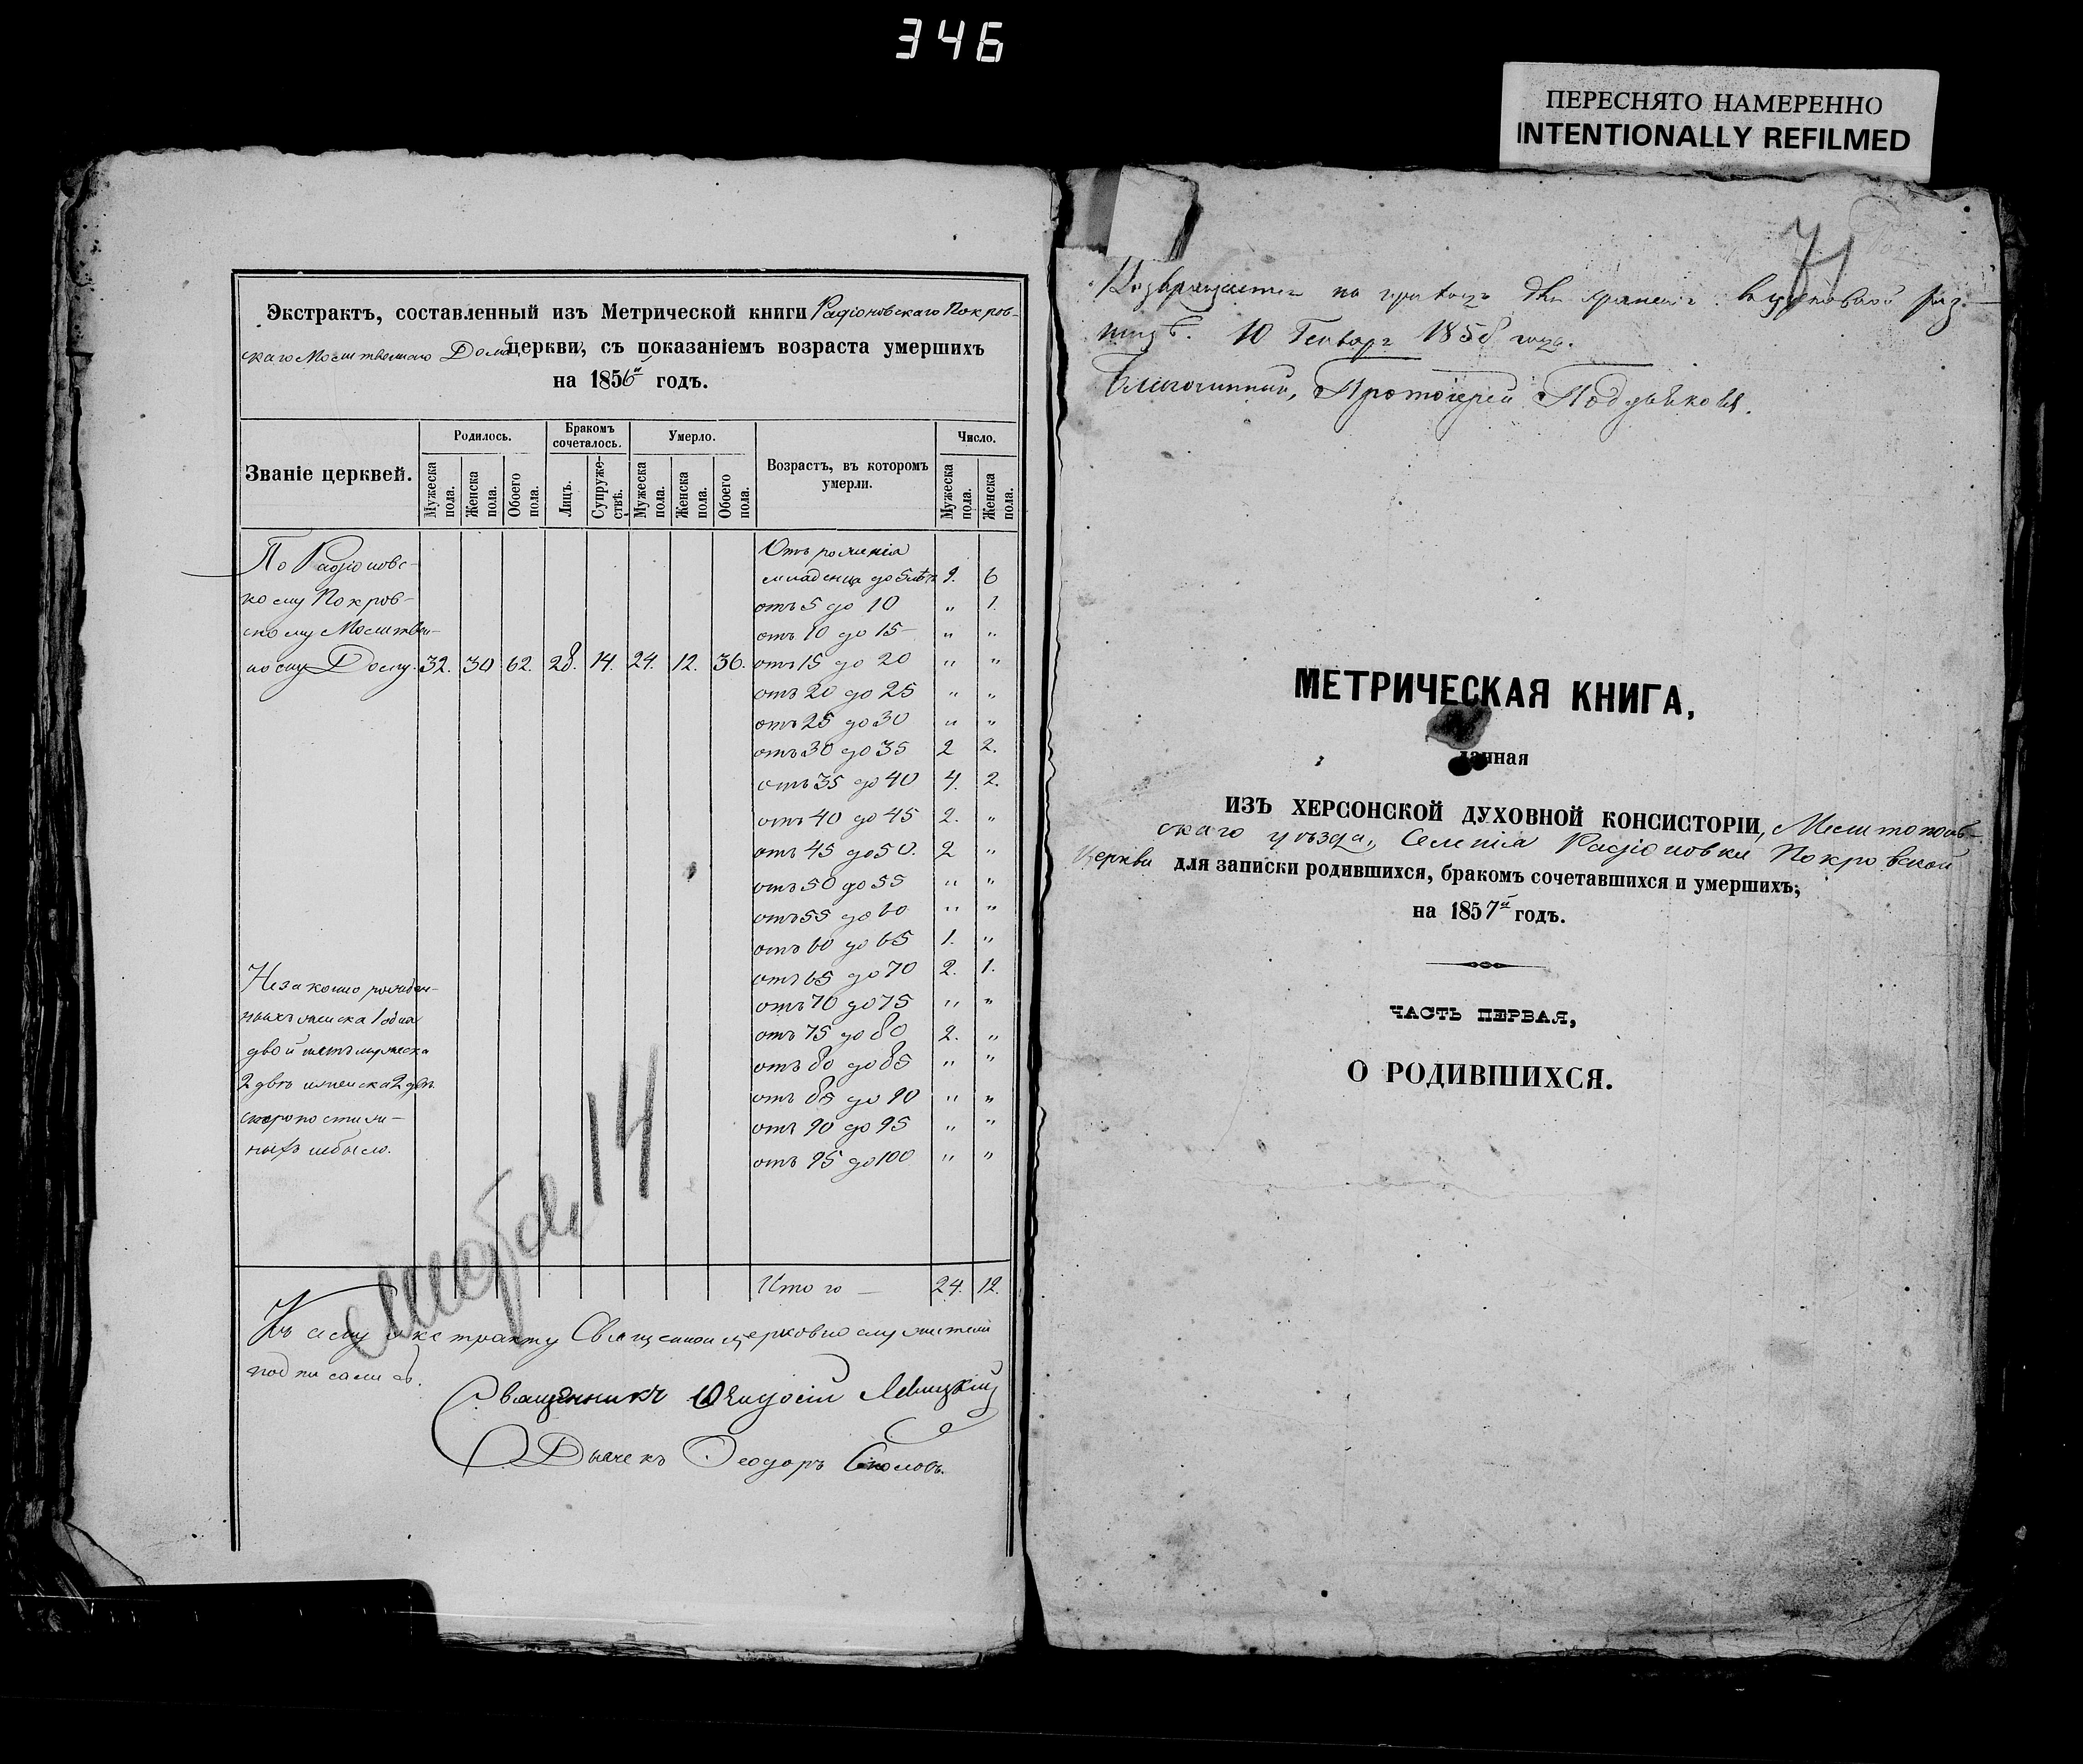 346
ПЕРЕСНЯТО НАМЕРЕННО
INTENTIONALLY REFILMED
Экстрактъ, составленный изъ Метрической книги Радіоновскаго Покров-
скаго Молитвеннаго Дома церкви, съ показаніемъ возраста умершихъ
на 1856й годъ.
Званіе церквей.
Родилось.
Бракомъ сочеталось.
Умерло.
Возрастъ, въ которомъ умерли.
Число.
Мужеска пола.
Женска пола.
Обоего пола.
Лицъ.
Супружествъ.
Мужеска пола.
Женска пола.
Обоего пола.
Мужеска пола.
Женска пола.
По Радіоновс-
кому Покров-
скому Молитвен-
ному Дому. 32. 30 62. 28. 14. 24. 12. 36.
Отъ рожденія
младенца до 5 лѣтъ 9. 6
отъ 5 до 10 " 1.
отъ 10 до 15 " "
отъ 15 до 20 " "
отъ 20 до 25 " "
отъ 25 до 30 " "
отъ 30 до 35 2 2.
отъ 35 до 40 4. 2.
отъ 40 до 45 2. "
отъ 45 до 50. 2 "
отъ 50 до 55 " "
отъ 55 до 60 " "
отъ 60 до 65 1. "
отъ 65 до 70 2. 1.
отъ 70 до 75 " "
отъ 75 до 80 2. "
отъ 80 до 85 " "
отъ 85 до 90 " "
отъ 90 до 95 " "
отъ 95 до 100 " "
Незаконно рожден-
ныхъ женска 1 одна
двойнятъ мужеска
2 двѣ женска 2 двѣ
скоропостиж-
ныхъ небыло.
14
Итого — 24. 12.
Къ сему экстракту Священно и церковно служители
подписались.
Священникъ Левицкій
Дьячекъ Феодоръ
71
Возвращается на храненіе
10 Генваря 1858 года.
Благочинный, Протоіерей
МЕТРИЧЕСКАЯ КНИГА,
данная
ИЗЪ ХЕРСОНСКОЙ ДУХОВНОЙ КОНСИСТОРІИ, Мелитополь-
скаго уѣзда, Селенія Радіоновки Покровской
Церкви для записки родившихся, бракомъ сочетавшихся и умершихъ;
на 1857й годъ.
ЧАСТЬ ПЕРВАЯ,
О РОДИВШИХСЯ.